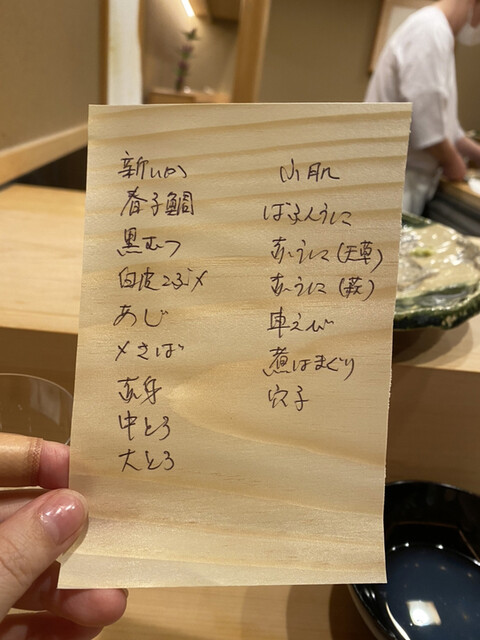 新いか
春子鯛
黒むつ
白皮こぶ〆
あじ
〆さば
赤身
中とろ
大とろ
小肌
ばふんうに
赤うに(天草)
赤うに(萩)
車えび
煮はまぐり
穴子